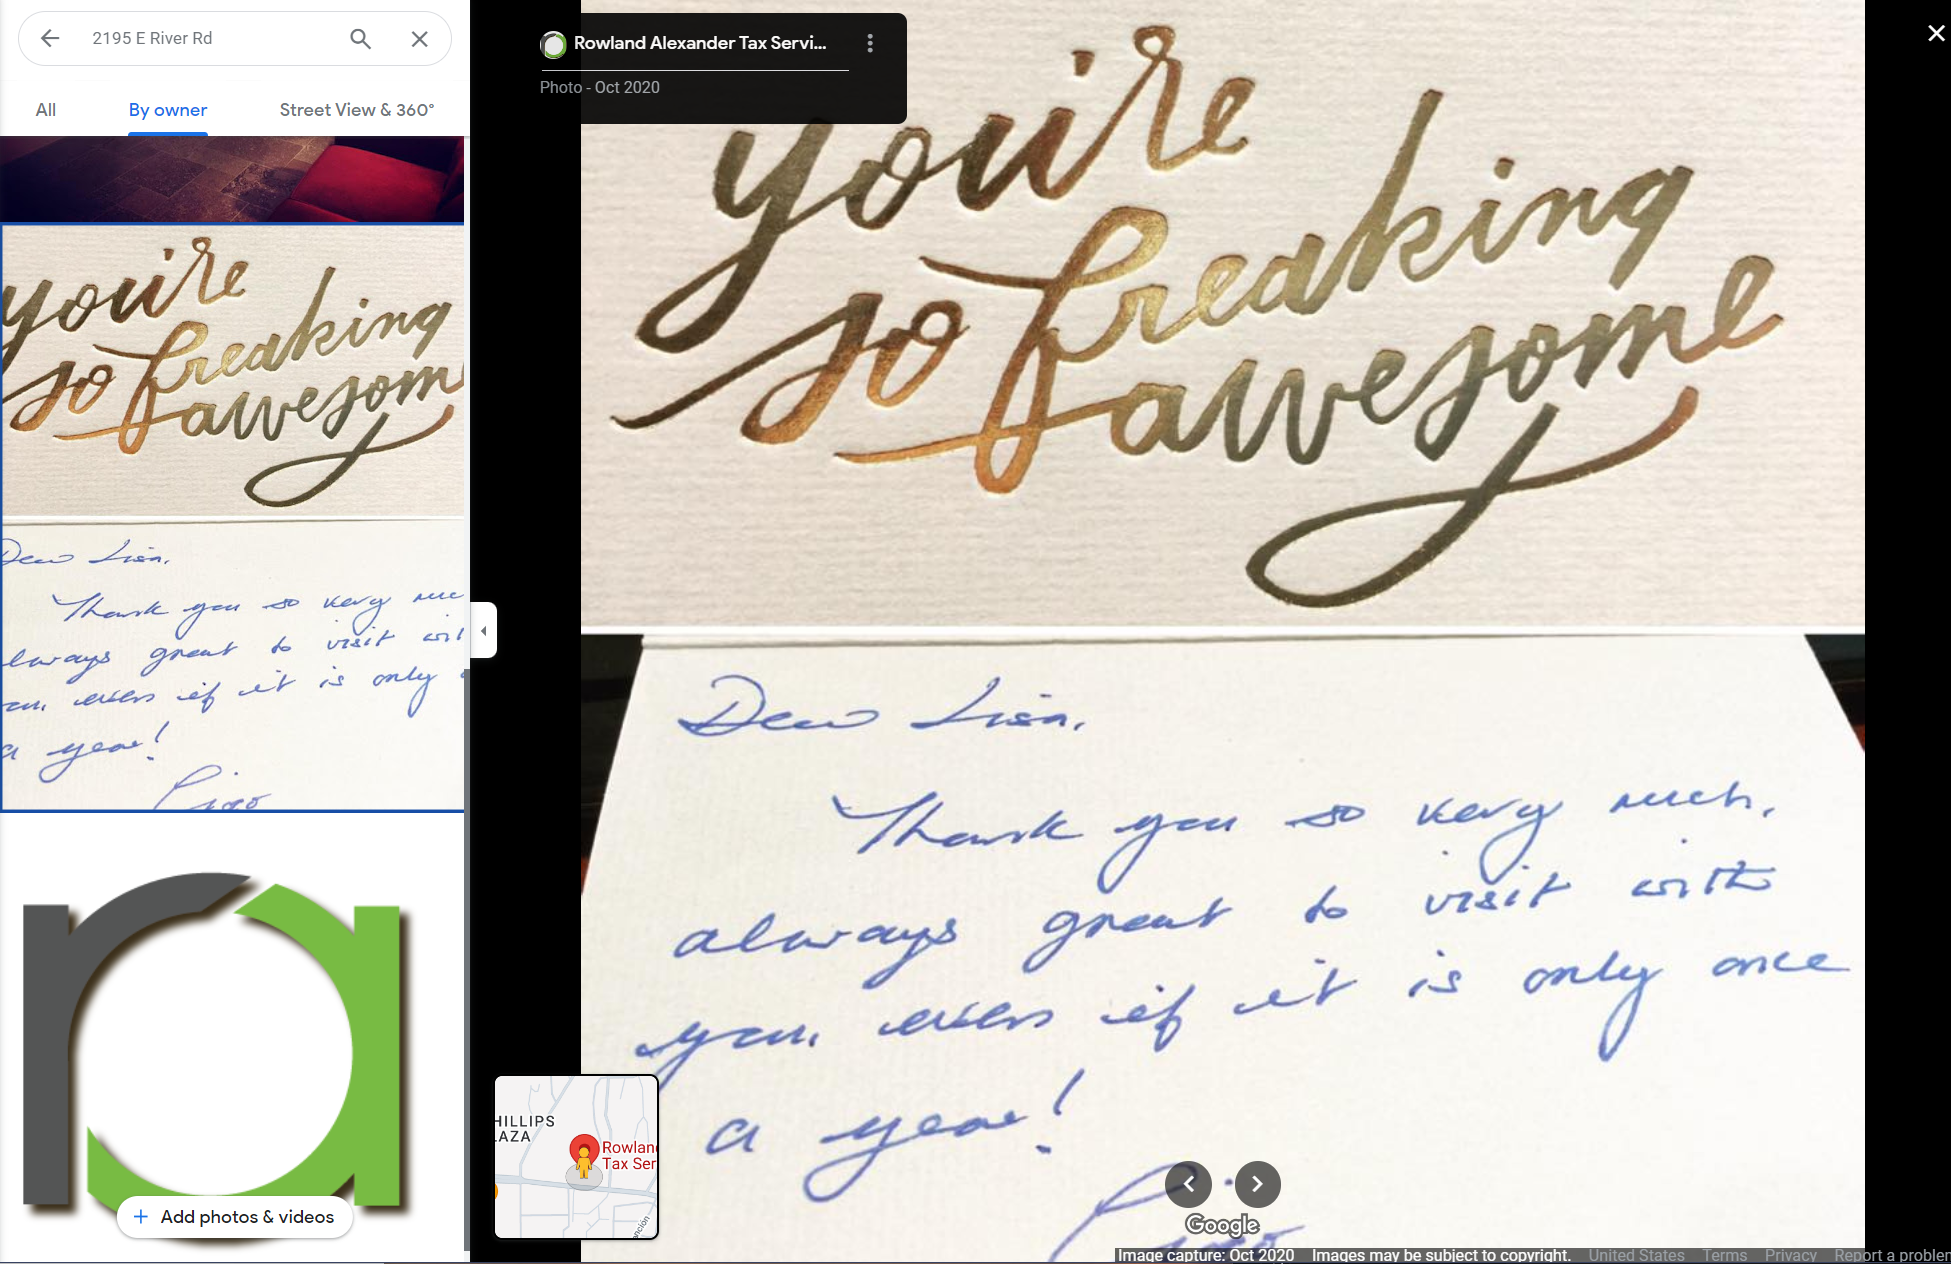 2195 E River Rd
All
By owner
Street View & 360°
you're
so freaking
awesom
Dear Lisa,
Thank you so very muc
lways great to visit wit
ou, even if it is only
a year!
ra
Add photos & videos
Rowland Alexander Tax Servi...
Photo - Oct 2020
you're
so freaking
awesome
Dear Lisa,
Thank you so very much,
always great to visit with
you, even if it is only once
a year!
HILLIPS
LAZA
Rowlan
Tax Ser
Google
Image capture: Oct 2020 Images may be subject to copyright. United States Terms Privacy Report a problem